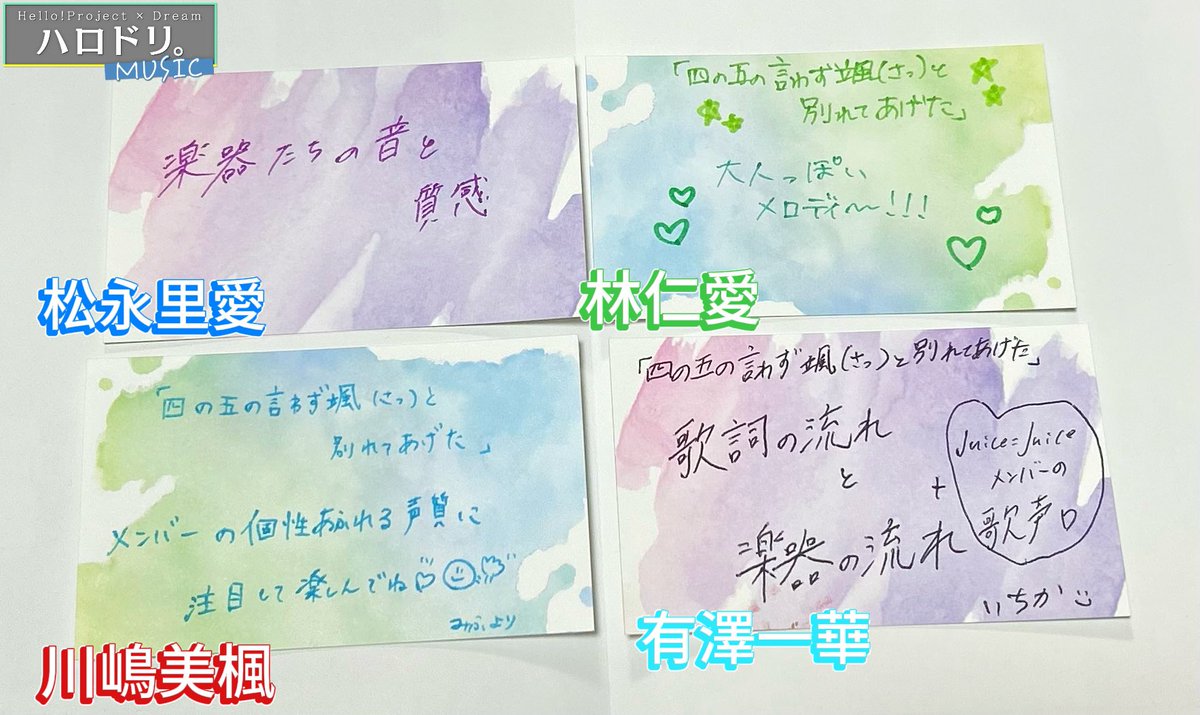 Hello!Project × Dream
ハロドリ。
MUSIC
楽器たちの音と
質感
松永里愛
「四の五の言わず颯(さっ)と
別れてあげた」
大人っぽい
メロディ〜!!!
林仁愛
「四の五の言わず颯(さっ)と
別れてあげた」
メンバーの個性あふれる声質に
注目して楽しんでね
みふより
川嶋美楓
「四の五の言わず颯(さっ)と別れてあげた」
歌詞の流れ
と
楽器の流れ
+
Juice=Juice
メンバーの
歌声
いちか
有澤一華